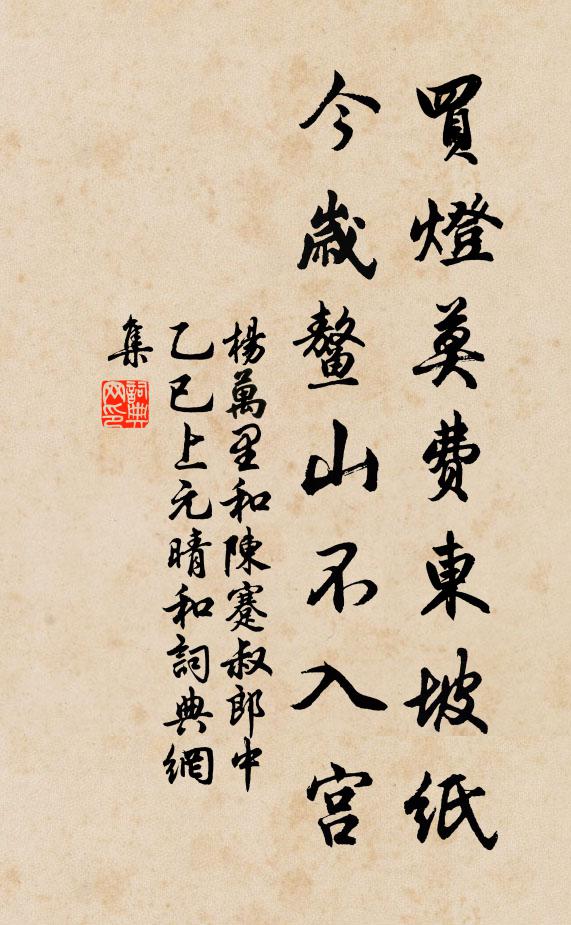 買燈莫费東坡紙
今歲鰲山不入宮
楊萬里和陳蹇叔郎中
乙巳上元晴和詞典網
集
詞典
网印